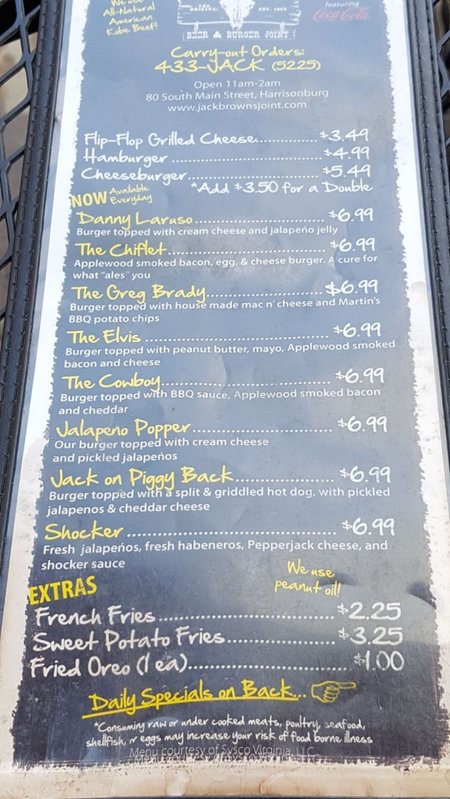 We use
All-Natural
American
Kobe Beef!
featuring
Coca-Cola
BEER & BURGER JOINT
Carry-out Orders:
433-JACK (5225)
Open 11am-2am
80 South Main Street, Harrisonburg
www.jackbrownsjoint.com
Flip-Flop Grilled Cheese............. $3.49
Hamburger ............................ $4.99
Cheeseburger........................ $5.49
*Add $3.50 for a Double
NOW Available Everyday
Danny Laruso........................ $6.99
Burger topped with cream cheese and jalapeńo jelly
The Chiflet............................. $6.99
Applewood smoked bacon, egg, & cheese burger. A cure for
what "ales" you
The Greg Brady...................... $6.99
Burger topped with house made mac n' cheese and Martin's
BBQ potato chips
The Elvis ............................... $6.99
Burger topped with peanut butter, mayo, Applewood smoked
bacon and cheese
The Cowboy............................ $6.99
Burger topped with BBQ sauce, Applewood smoked bacon
and cheddar
Jalapeno Popper...................... $6.99
Our burger topped with cream cheese
and pickled jalapeńos
Jack on Piggy Back................. $6.99
Burger topped with a split & griddled hot dog, with pickled
jalapenos & cheddar cheese
Shocker ................................. $6.99
Fresh jalapeńos, fresh habeneros, Pepperjack cheese, and
shocker sauce
We use
peanut oil!
EXTRAS
French Fries........................... $2.25
Sweet Potato Fries................. $3.25
Fried Oreo (1 ea)..................... $1.00
Daily Specials on Back...
*Consuming raw or under cooked meats, poultry, seafood,
shellfish, or eggs may increase your risk of food borne illness
Menu courtesy of Sysco Virginia, LLC